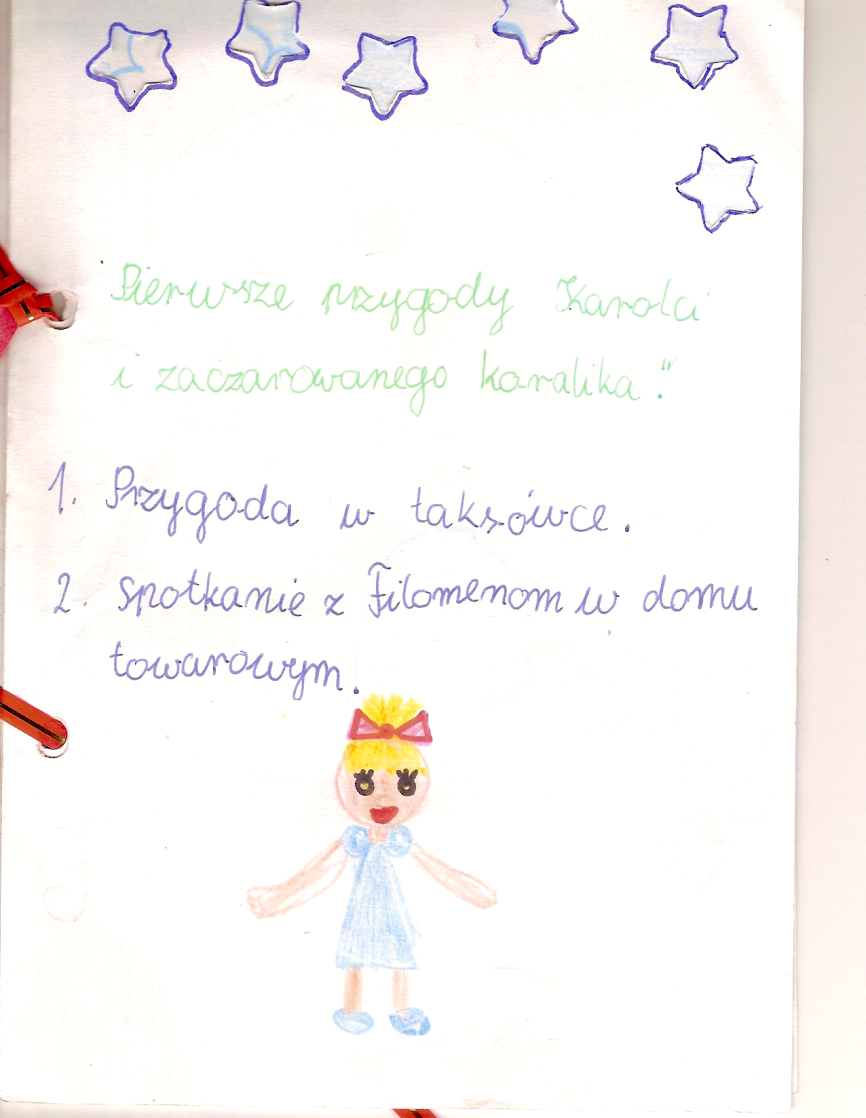 Pierwsze przygody Karolci
i zaczarowanego karalika."
1. Przygoda w taksówce.
2. Spotkanie z Filomenom w domu
towarowym.